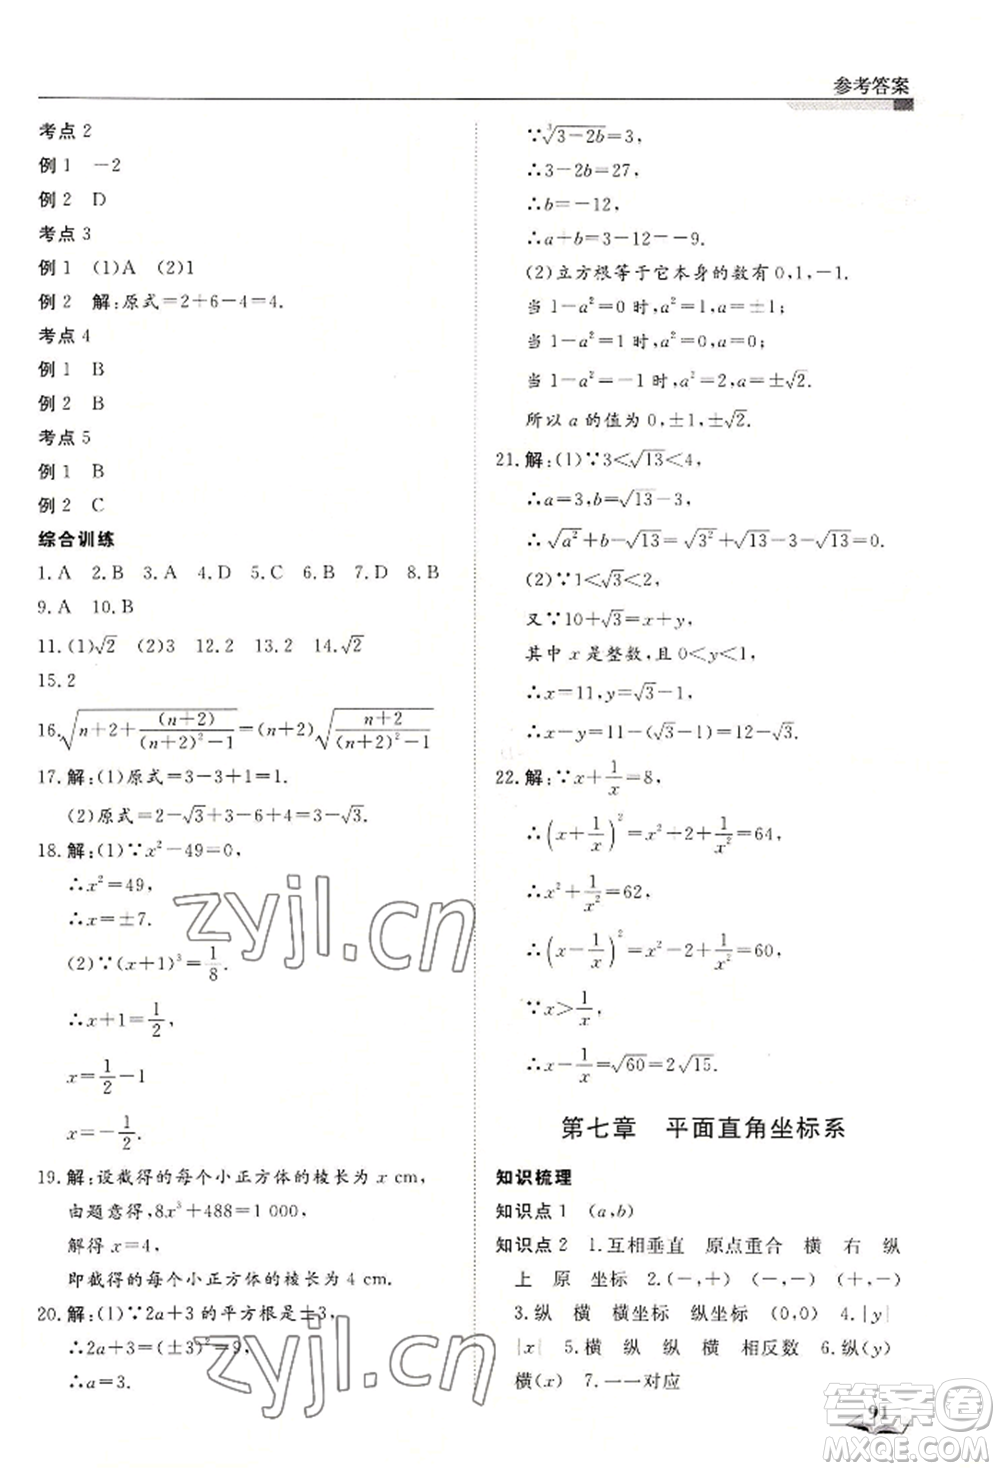 参考答案
考点2
例1 -2
例2 D
考点3
例1 (1)A (2)1
例2 解:原式=2+6-4=4.
考点4
例1 B
例2 B
考点5
例1 B
例2 C
综合训练
1.A 2.B 3.A 4.D 5.C 6.B 7.D 8.B
9.A 10.B
11.(1)√2 (2)3 12.2 13.2 14.√2
15.2
16.√(n+2+(n+2)/((n+2)²-1))=(n+2)√((n+2)/((n+2)²-1))
17.解:(1)原式=3-3+1=1.
(2)原式=2-√3+3-6+4=3-√3.
18.解:(1)∵x²-49=0,
∴x²=49,
∴x=±7.
(2)∵(x+1)³=1/8.
∴x+1=1/2,
x=1/2-1
x=-1/2.
19.解:设截得的每个小正方体的棱长为x cm,
由题意得,8x³+488=1 000,
解得x=4,
即截得的每个小正方体的棱长为4 cm.
20.解:(1)∵2a+3的平方根是±3,
∴2a+3=(±3)²=9,
∴a=3.
∵³√(3-2b)=3,
∴3-2b=27,
∴b=-12,
∴a+b=3-12=-9.
(2)立方根等于它本身的数有0,1,-1.
当1-a²=0时,a²=1,a=±1;
当1-a²=1时,a²=0,a=0;
当1-a²=-1时,a²=2,a=±√2.
所以a的值为0,±1,±√2.
21.解:(1)∵3<√13<4,
∴a=3,b=√13-3,
∴√a²+b-√13=√3²+√13-3-√13=0.
(2)∵1<√3<2,
又∵10+√3=x+y,
其中x是整数,且0<y<1,
∴x=11,y=√3-1,
∴x-y=11-(√3-1)=12-√3.
22.解:∵x+1/x=8,
∴(x+1/x)²=x²+2+1/x²=64,
∴x²+1/x²=62,
∴(x-1/x)²=x²-2+1/x²=60,
∵x>1/x,
∴x-1/x=√60=2√15.
第七章 平面直角坐标系
知识梳理
知识点1 (a,b)
知识点2 1.互相垂直 原点重合 横 右 纵
上 原 坐标 2.(-,+) (-,-) (+,-)
3.纵 横 横坐标 纵坐标 (0,0) 4.|y|
|x| 5.横 纵 纵 横 相反数 6.纵(y)
横(x) 7.一一对应
91
zyjl.cn
zyjl.cn
答案卷
MXQE.COM